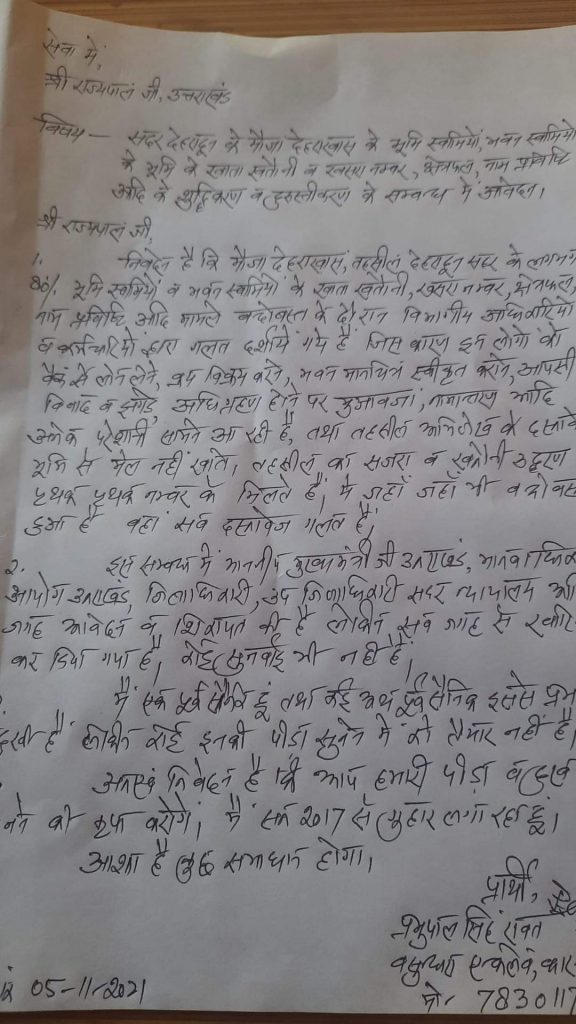 सेवा में,
श्री राज्यपाल जी, उत्तराखंड
विषय — सदर देहरादून के मौजा देहराखास के भूमि स्वामियों, भवन स्वामियों
के भूमि के खाता खतौनी व खसरा नम्बर, क्षेत्रफल, नाम प्रविष्टि
आदि के शुद्धिकरण व दुरुस्तीकरण के सम्बन्ध में आवेदन।
श्री राज्यपाल जी,
1. निवेदन है कि मौजा देहराखास, तहसील देहरादून सदर के लगभग
80% भूमि स्वामियों व भवन स्वामियों के खाता खतौनी, खसरा नम्बर, क्षेत्रफल,
नाम प्रविष्टि आदि मामले बन्दोबस्त के दौरान विभागीय अधिकारियों
व कर्मचारियों द्वारा गलत दर्शाये गये हैं जिस कारण इन लोगों को
बैंक से लोन लेने, क्रय विक्रय करने, भवन मानचित्र स्वीकृत कराने, आपसी
विवाद व झगड़े, अधिग्रहण होने पर मुआवजा, नामान्तरण आदि
अनेक परेशानी सामने आ रही है, तथा तहसील अभिलेख के दस्तावे
भूमि से मेल नहीं खाते, तहसील का सजरा व खतौनी उद्धरण
पृथक पृथक नम्बर के मिलते हैं, में जहाँ जहाँ भी बन्दोबस
हुआ है वहां सर्व दस्तावेज गलत हैं।
2. इस सम्बन्ध में माननीय मुख्यमंत्री जी उत्तराखंड, मानवाधिक
आयोग उत्तराखंड, जिलाधिकारी, उप जिलाधिकारी सदर न्यायालय आ
जगह आवेदन व शिकायत की है लेकिन सब जगह से खारि
कर दिया गया है, कोई सुनवाई भी नहीं है,
मैं एक पूर्व सैनिक हूं तथा कई अन्य पूर्व सैनिक इससे प्रभा
दुखी हैं लेकिन कोई इनकी पीड़ा सुनने में को तैयार नहीं है,
अतएव निवेदन है कि आप हमारी पीड़ा व
नने की कृपा करोगे, मैं सन 2017 से गुहार लगा रहा हूं।
आशा है कुछ समाधान होगा।
प्रार्थी,
प्रभुपाल सिंह रावत
वसुन्धरा एन्कलेव, कार
05-11-2021
मो. 7830117